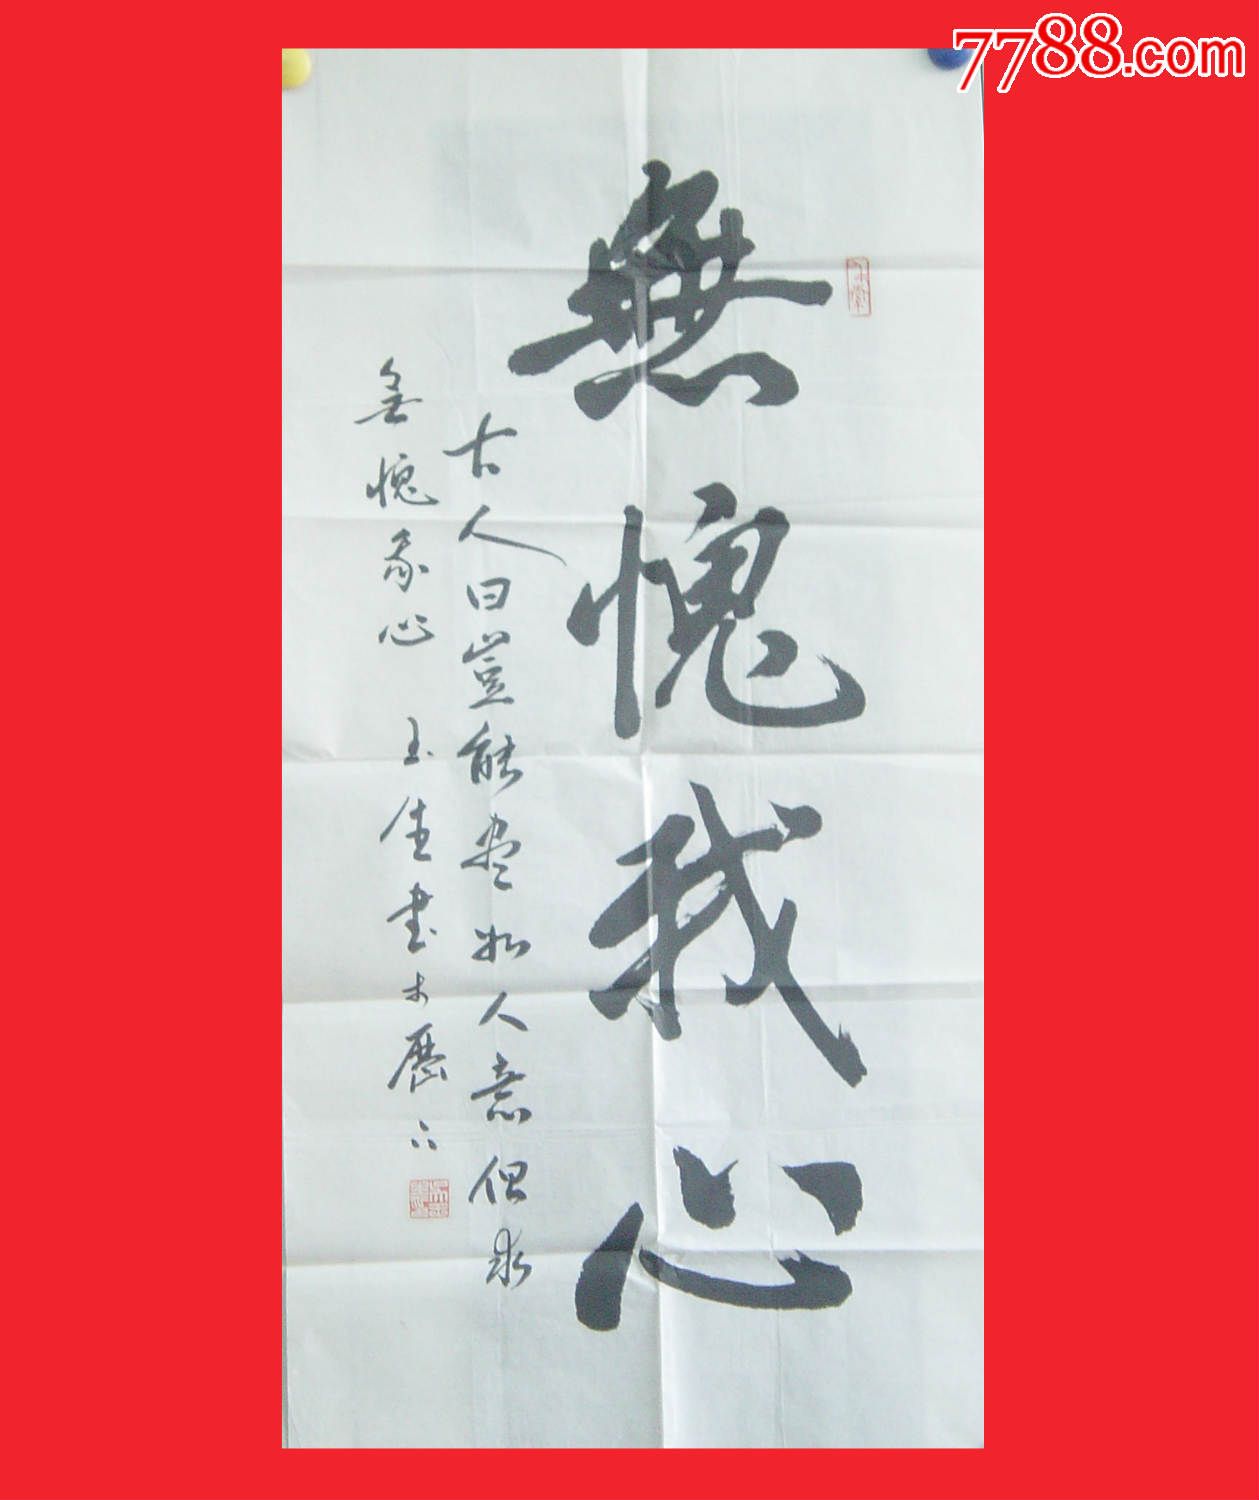 7788.com
無愧我心
古人曰豈能尽如人意但求
無愧我心 玉生書于歷下